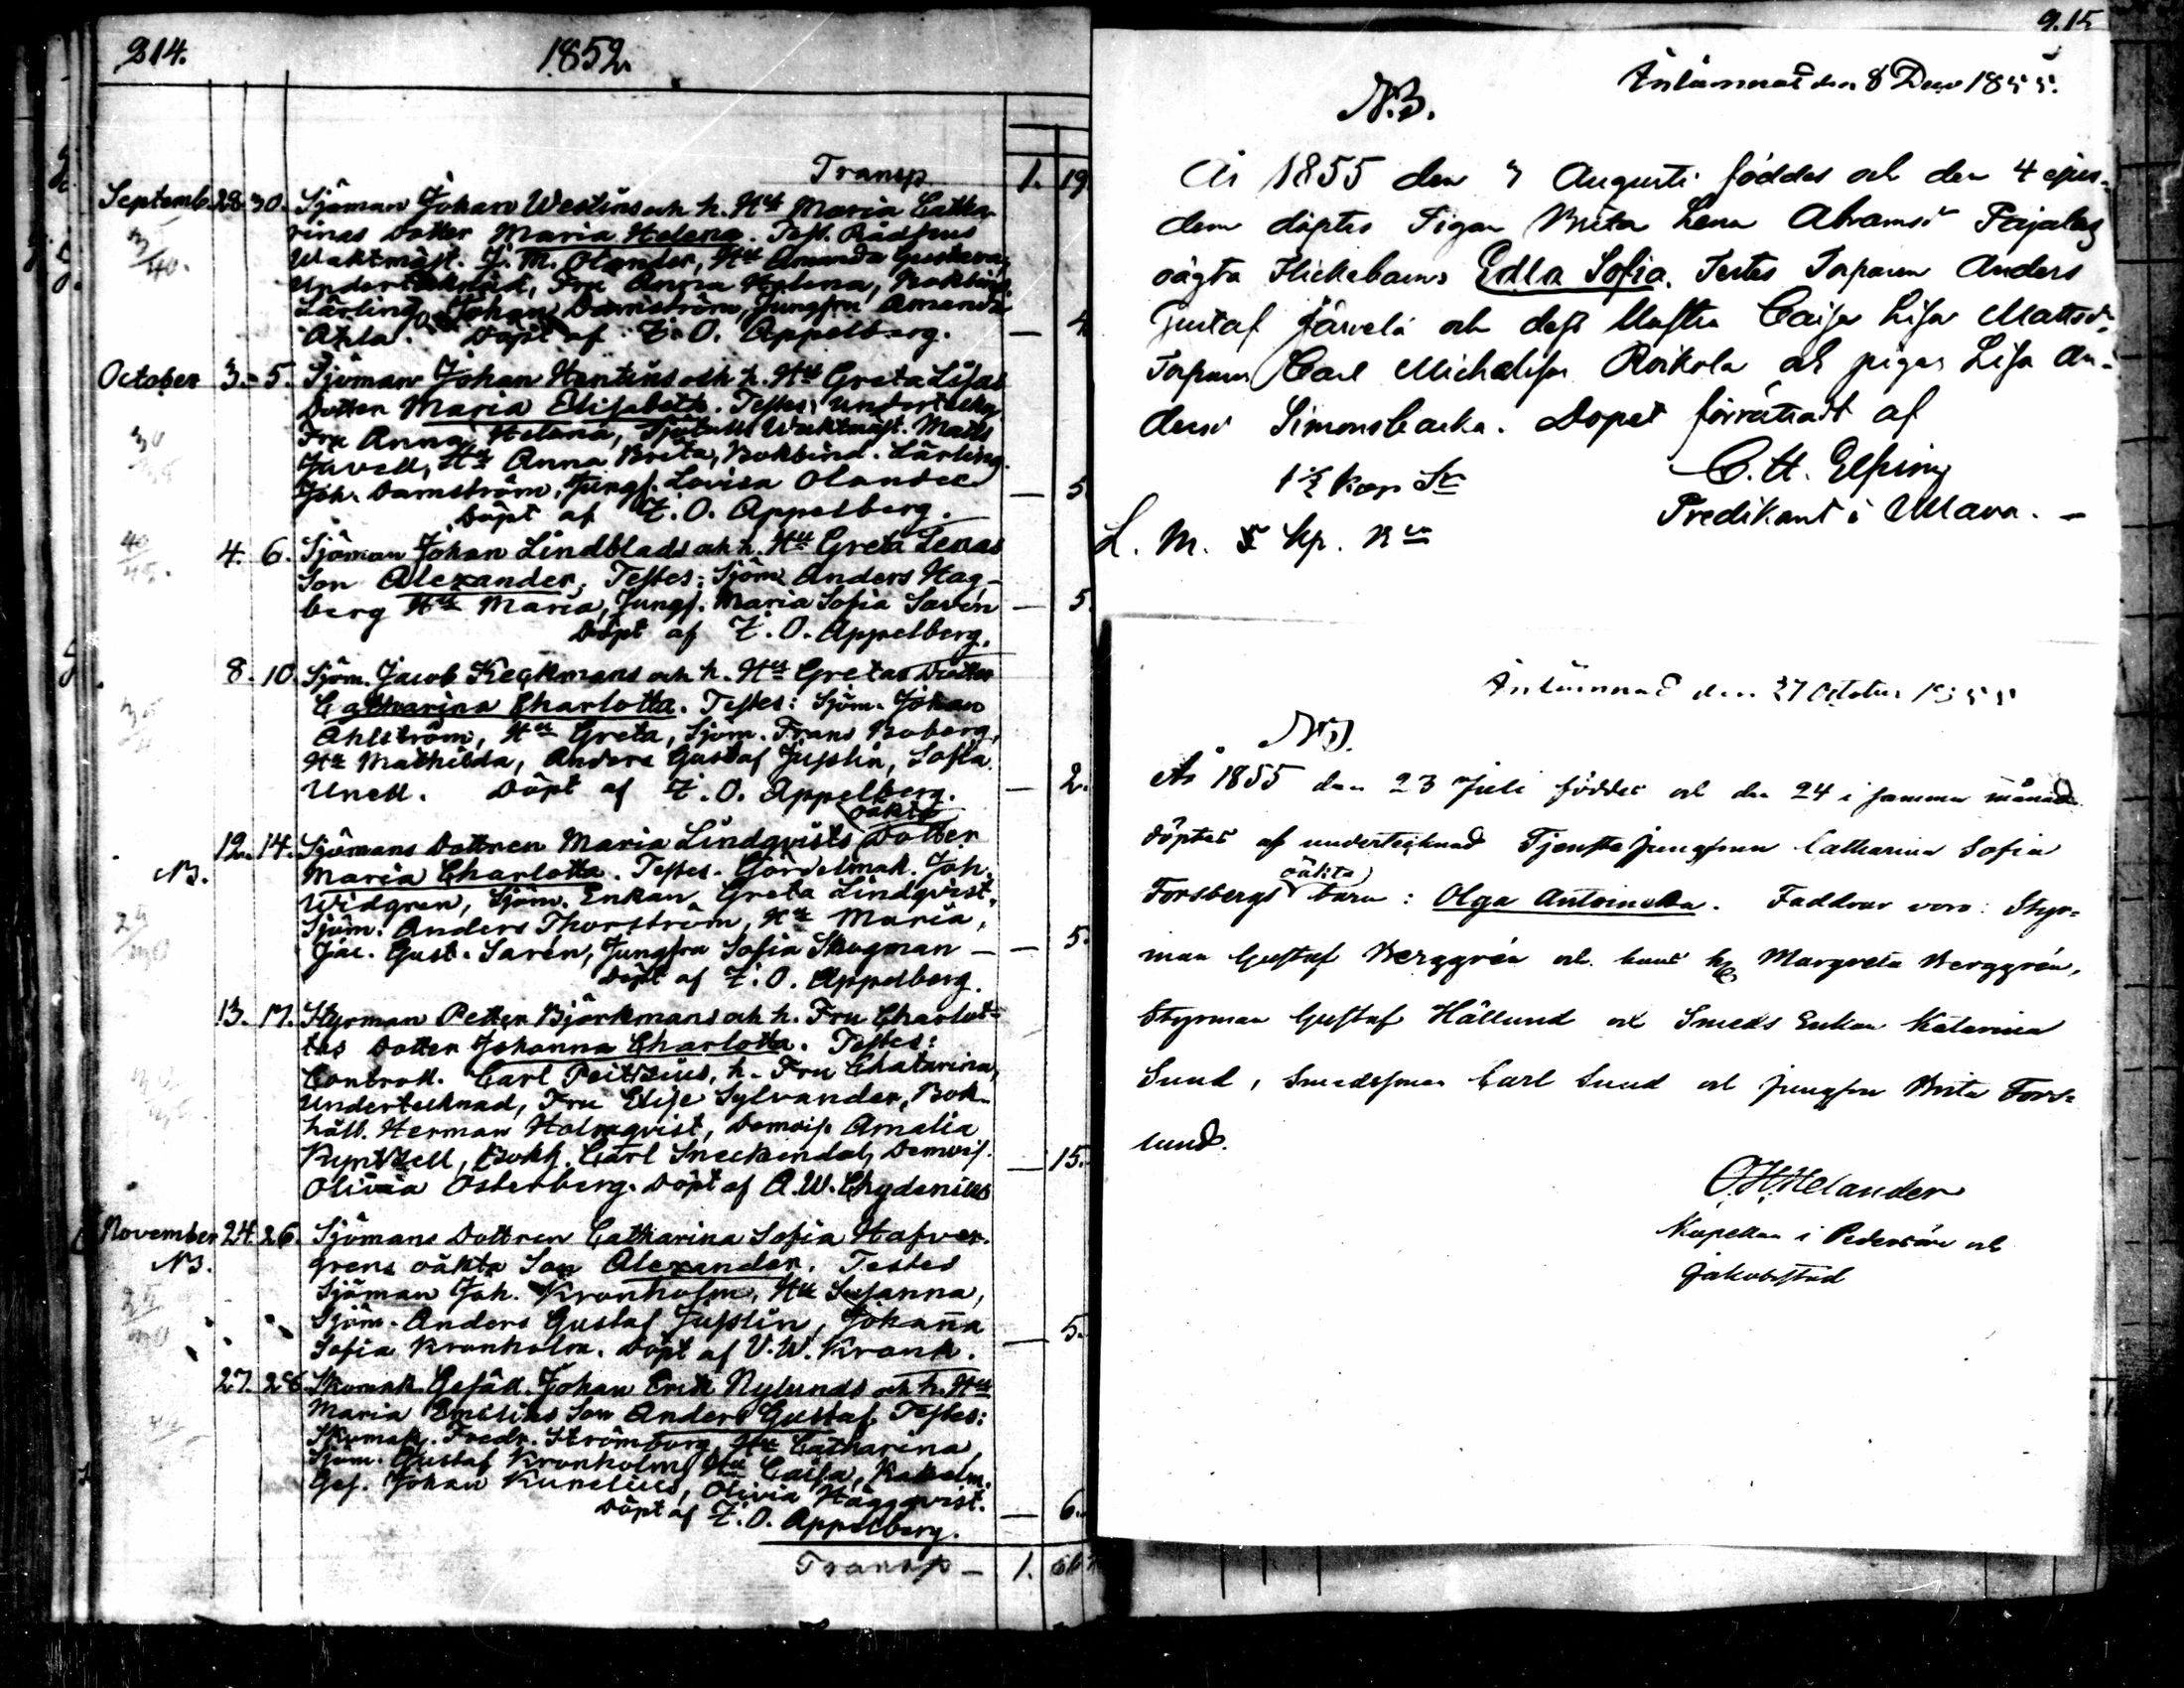 214.
1852.
Transp 1. 19
Septemb. 28. 30. Sjöman Johan Westins och h. Hu Maria Catha-
rinas Dotter Maria Helena. Test. Rådhus
Waktmäst. J. M. Olander, Hu Amanda Gustava,
Undertecknad, Fru Anna Helena, Bokbind.
Lärling Johan Damström, Jungfru Amanda
Döpt af Z. O. Appelberg. — 4
October 3. 5. Sjöman Johan Hentins och h. Hu Greta Lisas
Dotter Maria Elisabeth. Testes: Undertecknd
Fru Anna Helena, Waktmäst. Matts
Javell, Hu Anna Brita, Bokbind. Lärling
Joh. Damström, Jungf. Lovisa Olander — 5
Döpt af Z. O. Appelberg.
4. 6. Sjöman Johan Lindblads och h. Hu Greta Lenas
Son Alexander. Testes: Sjöm Anders Hag-
berg Hu Maria, Jungf. Maria Sofia Sarén — 5.
Döpt af Z. O. Appelberg.
8. 10. Sjöm. Jacob Keckmans och h. Hu Gretas Dotter
Catharina Charlotta. Testes: Sjöm. Johan
Ahlström, Hu Greta, Sjöm. Frans Boberg,
Hu Mathilda, Anders Gustaf Juslin, Sofia
Unell. Döpt af Z. O. Appelberg. — 2.
oäkta
12. 14. Sjömans Dottren Maria Lindqvists Dotter
NB. Maria Charlotta. Testes. Gördelmak. Joh.
Widgren, Sjöm. Enkan Greta Lindqvist,
Sjöm. Anders Thorström, Hu Maria,
Jac. Gust. Sarén, Jungfru Sofia Skogman — 5.
Döpt af Z. O. Appelberg.
13. 17. Styrman Petter Björkmans och h. Fru Charlot-
tas Dotter Johanna Charlotta. Testes:
Controll. Carl Peitzius, h. Fru Chatarina,
Undertecknad, Fru Elise Sylvander, Bok-
håll. Herman Holmqvist, Demois. Amalia
Kyntzell, Bokh. Carl Sneckendal, Demois. — 15.
Olivia Österberg. Döpt af A. W. Chydenius
November 24. 26. Sjömans Dottren Catharina Sofia Hafver-
NB. grens oäkta Son Alexander. Testes
Sjöman Joh. Kronholm, Hu Susanna,
Sjöm. Anders Gustaf Juslin, Johanna
Sofia Kronholm. Döpt af V. W. Krank. — 5.
27. 28. Skomak. Gesäll. Johan Erik Nylunds och h. Hu
Maria Emelias Son Anders Gustaf. Testes:
Skomak. Fredr. Strömborg, Hu Catharina,
Sjöm. Gustaf Kronholm, Hu Caisa, Kakelm.
Ges. Johan Kunelius, Olivia Häggqvist. — 6.
Döpt af Z. O. Appelberg.
Transp — 1.
215
Inlämnad den 8 Decr 1855.
N.B.
År 1855 den Augusti föddes och den 4 ejus-
dem döptes Pigan Brita Lena Abramsd. Pajalas
oägta Flickebarn Edla Sofia. Testes Torparen Anders
Gustaf Järvelä och dess Hustru Caisa Lisa Mattsd.
Torparen Carl Michelsson Roikola och pigan Lisa An-
dersd Simonsbacka. Dopet förrättadt af
C. H. Elfving
Predikant i Ullava. —
1½ kop Sr
L. M. 5 kp. Rn
Inlämnad den 27 October 1855
NB.
År 1855 den 23 Juli föddes och den 24 i samma månad
döptes af undertecknad Tjenstejungfrun Catharina Sofia
oäkta
Forsbergs barn: Olga Antoinetta. Faddrar voro: Styr-
man Gustaf Berggrén och hans h. Margreta Berggrén,
Styrman Gustaf Hällund och Smeds Enkan Katarina
Sund, Smedsson Carl Sund och jungfru Brita Fors-
lund.
O. H. Helander
Kapellan i Pedersöre och
Jakobstad